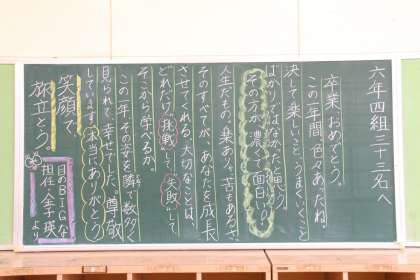 六年四組三十三名へ
卒業おめでとう。
この一年間、色々あったね。
決して楽しいこと、うまくいくこと
ばかりではなかったと思う。
その方が、濃くって面白い!!
人生だもの、楽あり、苦もあるさ。
そのすべてが、あなたを成長
させてくれる。大切なことは、
どれだけ挑戦して、失敗して
そこから学べるか。
この一年、その姿を隣で数多く
見られて、幸せでした。尊敬
しています。本当にありがとう
笑顔で、
旅立とう。
目のBIGな
担任 金子 瑛
より